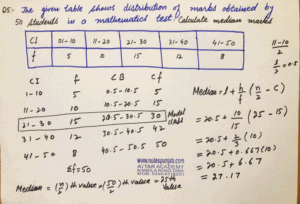 Q5:- The given table shows distribution of marks obtained by
50 students in a mathematics test calculate median marks
CI 01-10 11-20 21-30 31-40 41-50
f 5 10 15 12 8
11-10
2
1/2 = 0.5
CI f CB Cf
1-10 5 0.5-10.5 5
11-20 10 10.5-20.5 15
21-30 15 20.5-30.5 30
31-40 12 30.5-40.5 42
41-50 8 40.5-50.5 50
Σf=50
class
Median = l + h/f (n/2 - C)
= 20.5 + 10/15 (25-15)
= 20.5 + 2/3 (10)
= 20.5 + 0.667 (10)
= 20.5 + 6.67
= 27.17
www.nubespunjab.com
Median = (n/2)th value = (50/2)th value = 25th
Value